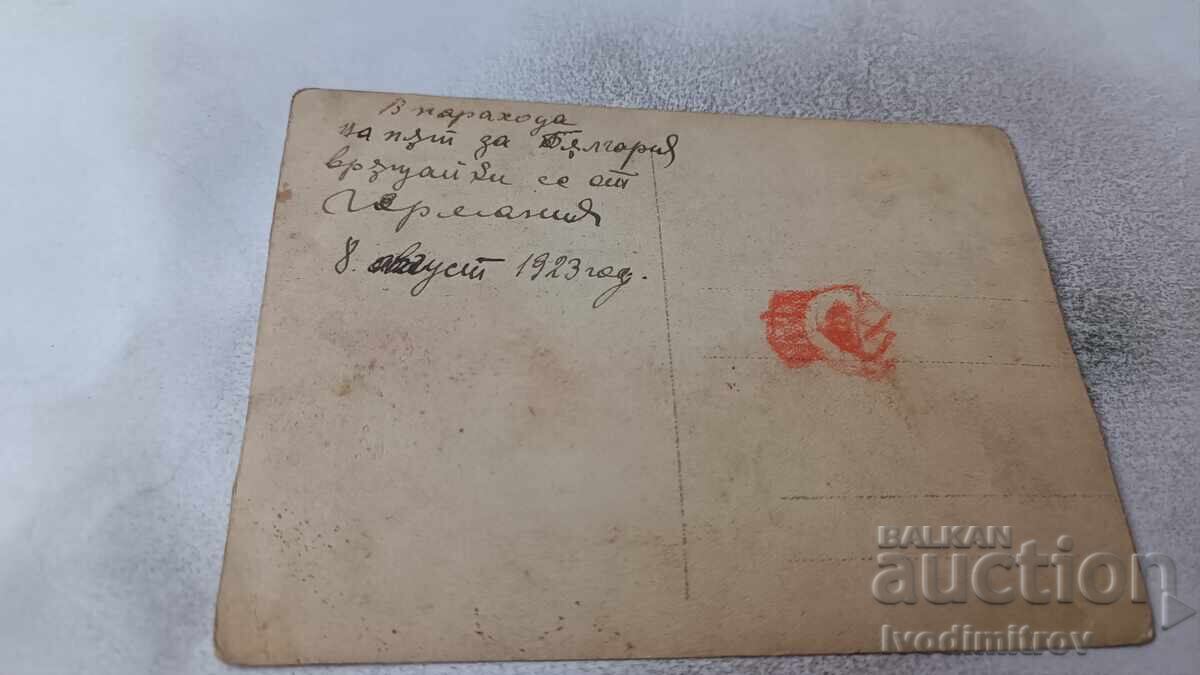 В парахода
на пѫт за Бѫлгария
врѫщайки се от
Германия
8. август 1923 год.
BALKAN
auction
Ivodimitrov